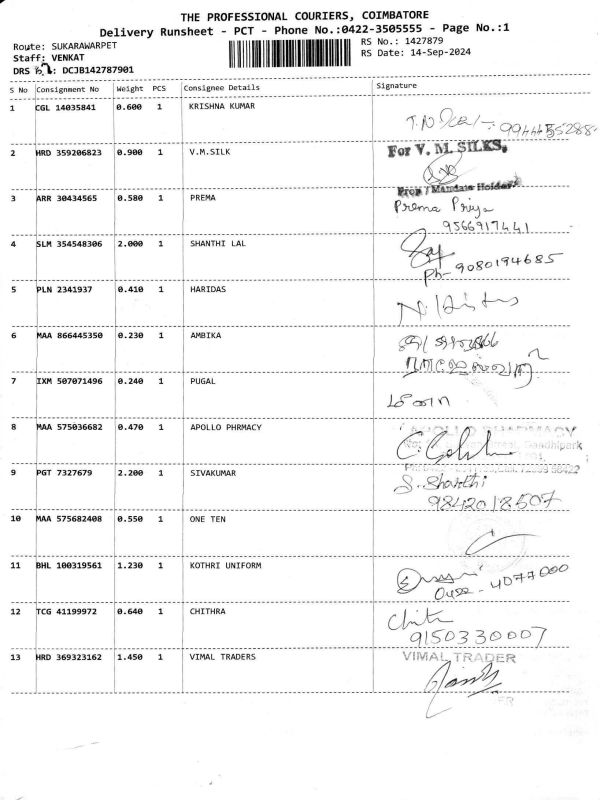 THE PROFESSIONAL COURIERS, COIMBATORE
Delivery Runsheet - PCT - Phone No.:0422-3505555 - Page No.:1
Route: SUKARAWARPET
RS No.: 1427879
Staff: VENKAT
RS Date: 14-Sep-2024
DRS : DCJB142787901
S No Consignment No Weight PCS Consignee Details Signature
1 CGL 14035841 0.600 1 KRISHNA KUMAR
2 HRD 359206823 0.900 1 V.M.SILK For V. M. SILKS,
Prop / Mandate Holder
3 ARR 30434565 0.580 1 PREMA Prema Priya
9566917441
4 SLM 354548306 2.000 1 SHANTHI LAL
Ph- 9080194685
5 PLN 2341937 0.410 1 HARIDAS
6 MAA 866445350 0.230 1 AMBIKA
7 IXM 507071496 0.240 1 PUGAL
8 MAA 575036682 0.470 1 APOLLO PHRMACY APOLLO PHARMACY
Gandhipark
9 PGT 7327679 2.200 1 SIVAKUMAR S. Shanthi
9842018507
10 MAA 575682408 0.550 1 ONE TEN
11 BHL 100319561 1.230 1 KOTHRI UNIFORM
0422 - 4077000
12 TCG 41199972 0.640 1 CHITHRA Chitra
9150330007
13 HRD 369323162 1.450 1 VIMAL TRADERS VIMAL TRADER